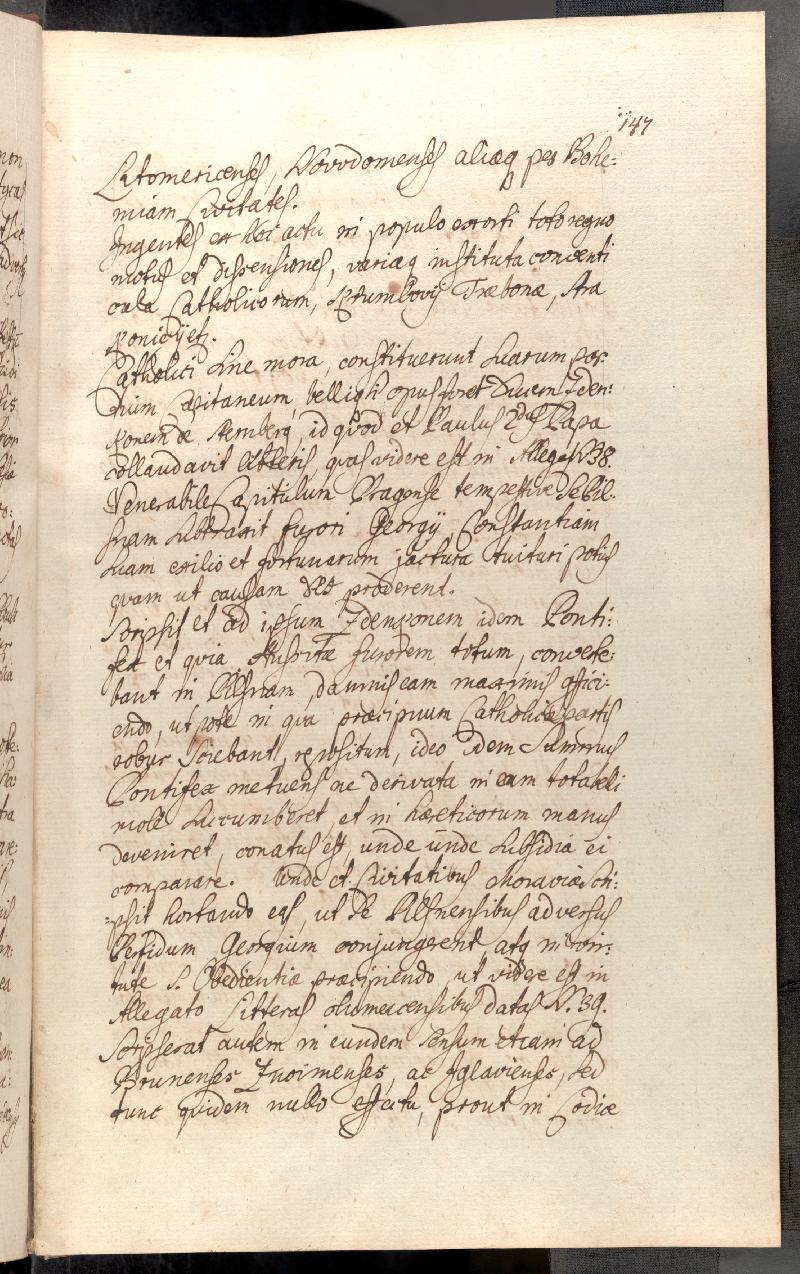 147
Litomericenses, Novodomenses aliæq per Bohe:
miam Civitates.
Ingentes ex hoc actu in populo exorti toto regno
motus et dissensiones, variæq instituta conventi
cula Catholicorum, Krumlovij Træbonæ, Stra
konicij etc.
Catholici sine mora, constituerunt suarum par
tium Capitaneum, belliq si opus foret Ducem Zden:
konem de Sternberg, id quod et Paulus 2dus Papa
collaudavit litteris, quas videre est in Allegat N 38.
Venerabile Capitulum Pragense tempestive se Pil-
snam subtraxit furori Georgij, Constantiam
suam exilio et fortunarum jactura tuituri potius
quam ut causam Dei proderent.
Scripsit et ad ipsum Zdenkonem idem Ponti:
fex et quia Hussitæ furorem totum, converte:
bant in Pilsnam, damnis eam maximis affici:
endo, utpote in qua præcipuum Catholicæ partis
robur sciebant, repositum, ideo idem Summus
Pontifex metuens ne derivata in eam tota belli
mole succumberet, et in hæreticorum manus
deveniret, conatus est, unde unde subsidia ei
comparare. Unde et Civitatibus Moraviæ scri:
:psit hortando eas, ut se Pilsnensibus adversus
Perfidum Georgium conjungerent atq in vir:
tute S. Obedientiæ præcipiendo, ut videre est in
Allegato Litteras Olumucensibus datas N. 39.
Scripserat autem in eundem sensum etiam ad
Brunenses Znoimenses, ac Iglavienses, sed
tunc quidem nullo effectu, prout in Codice